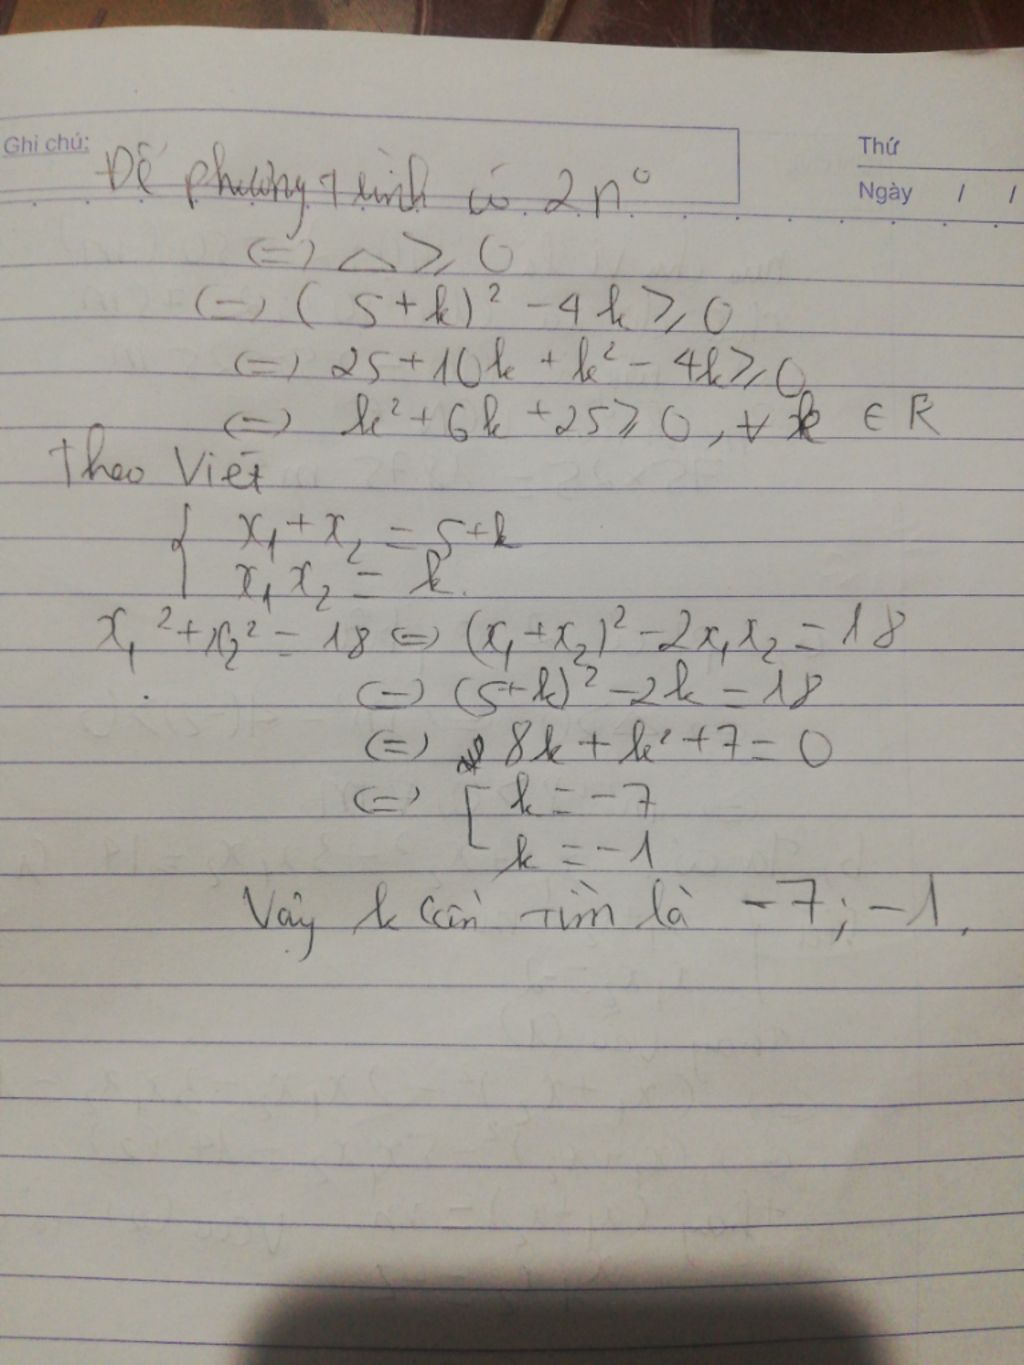 Ghi chú:
Thứ
Ngày / /
Để phương trình có 2 n⁰
(=) △ ⩾ 0
(=) ( 5+k)² - 4k ⩾ 0
(=) 25 + 10k + k² - 4k ⩾ 0
(=) k² + 6k + 25 ⩾ 0, ∀ k ∈ R
Theo Viét
{ x₁ + x₂ = 5+k
x₁ x₂ = k.
x₁² + x₂² = 18 (=) (x₁ + x₂)² - 2x₁x₂ = 18
(=) (5+k)² - 2k = 18
(=) 8k + k² + 7 = 0
(=) [ k = -7
k = -1
Vậy k cần tìm là -7; -1.